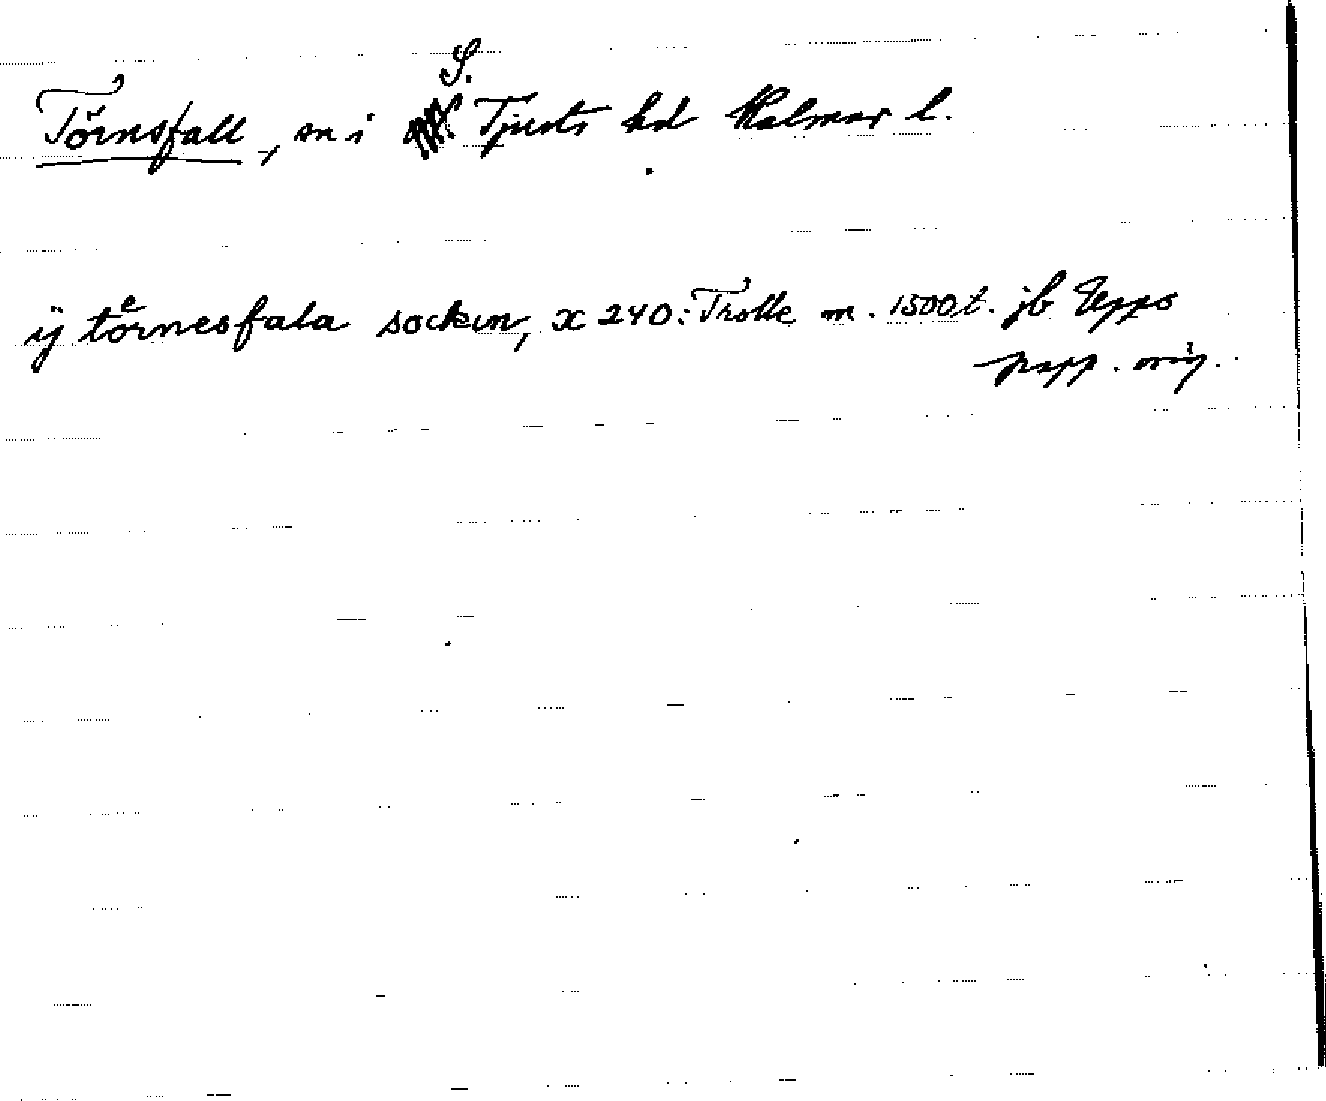 Törnsfall, sn i S. Tjusts hd Kalmar l.
ij tőrnesfala sockin, x 240: Trolle m. 1500t. jb Upps
papp. orig.